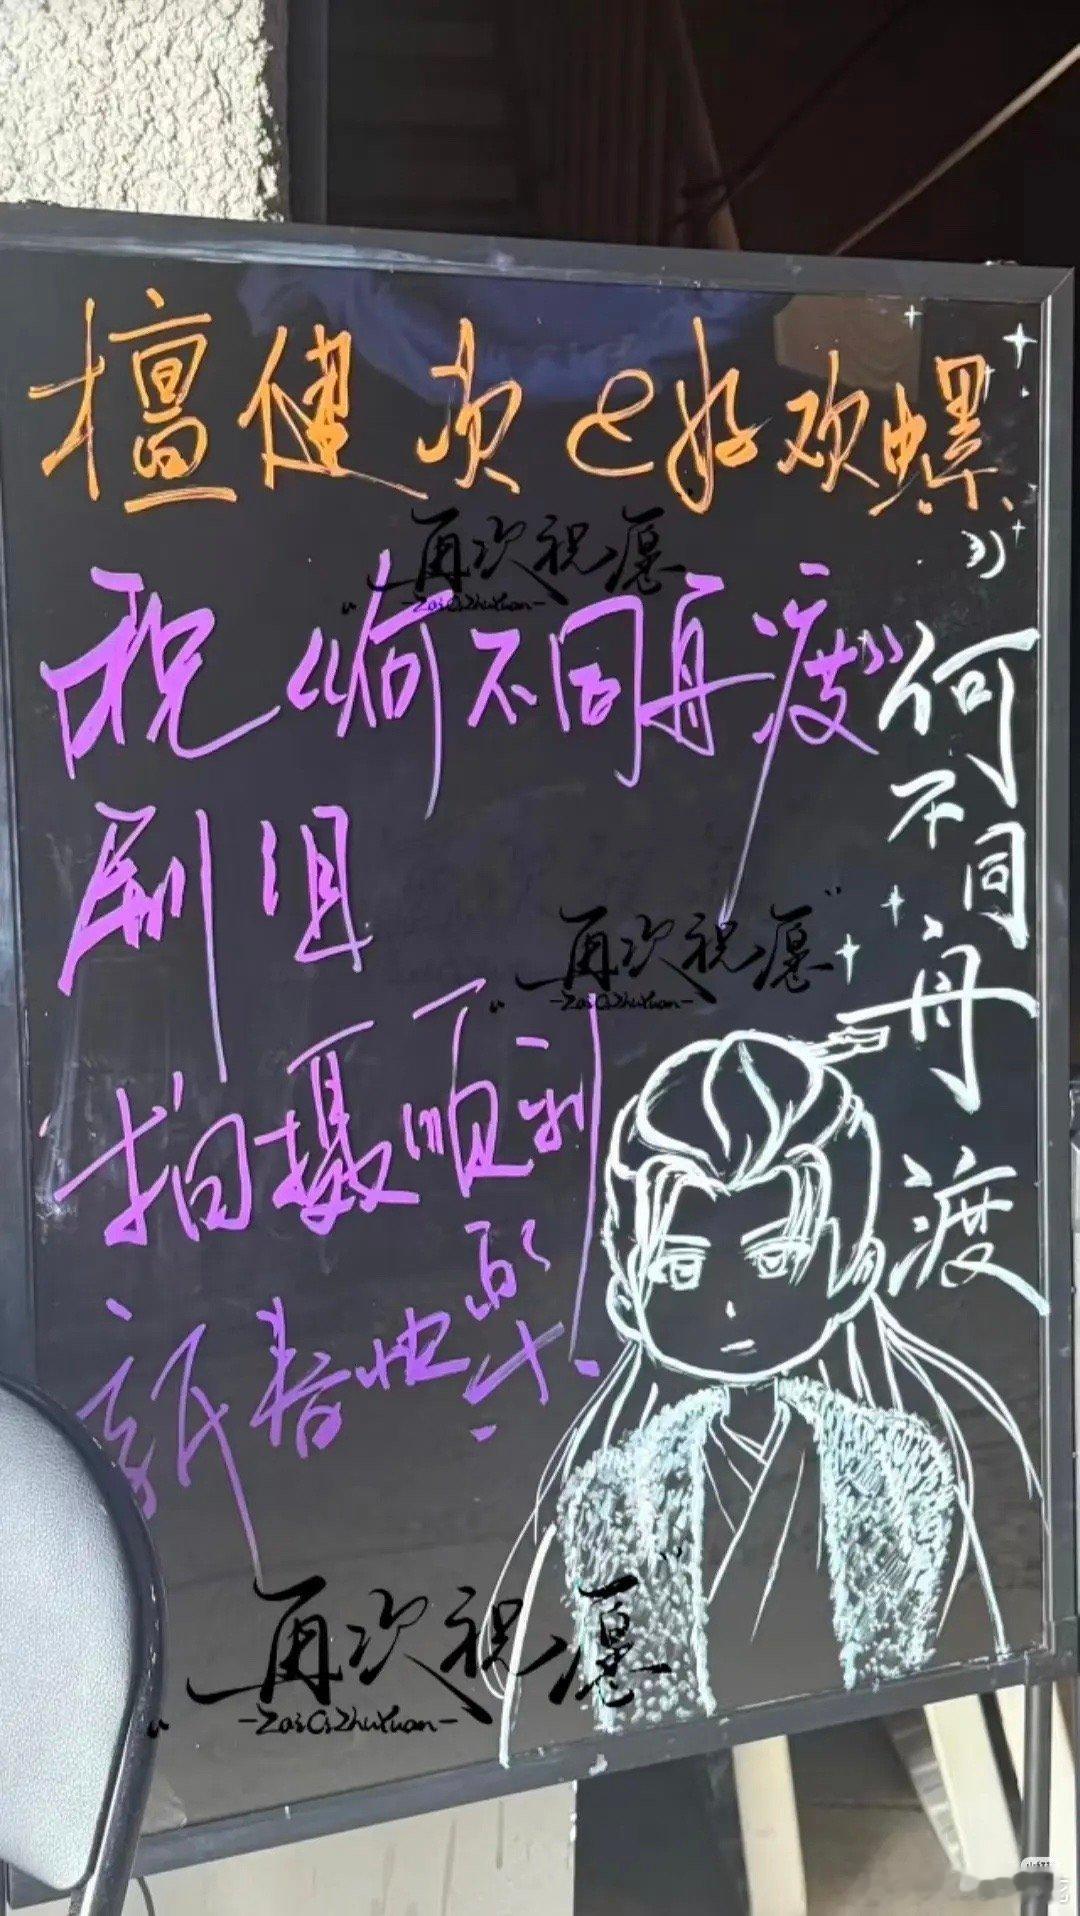 檀健次 & 好欢螺
祝《何不同舟渡》
剧组
拍摄顺利
新春快乐
何不同舟渡
再次祝愿
-ZaiCiZhuYuan-
再次祝愿
-ZaiCiZhuYuan-
再次祝愿
-ZaiCiZhuYuan-